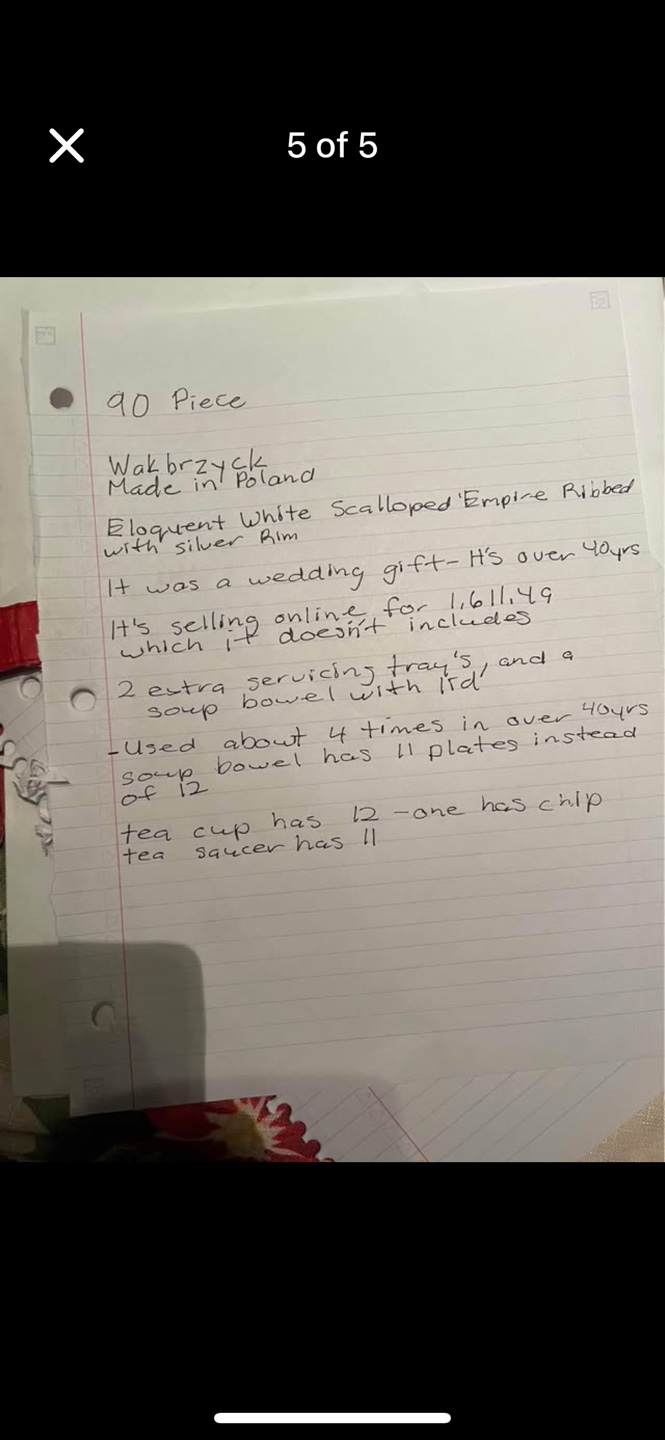 5 of 5
90 Piece
Wakbrzyck
Made in Poland
Eloquent White Scalloped 'Empire Ribbed
with silver Rim
It was a wedding gift- It's over 40yrs
It's selling online for 1,611.49
which it doesn't includes
2 extra servicing tray's, and a
soup bowel with lid
-Used about 4 times in over 40yrs
soup bowel has 11 plates instead
of 12
tea cup has 12 -one has chip
tea saucer has 11